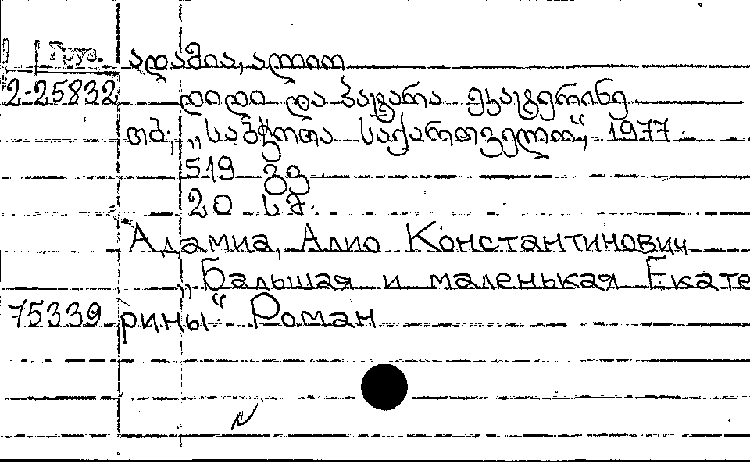 Груз. ადამია, ალიო
2-25832 დიდი და პატარა ეკატერინე
თბ., „საბჭოთა საქართველო“, 1977
519 გვ
20 სმ.
Адамиа, Алио Константинович
„Балышая и маленькая Екате
75339 рины“ Роман